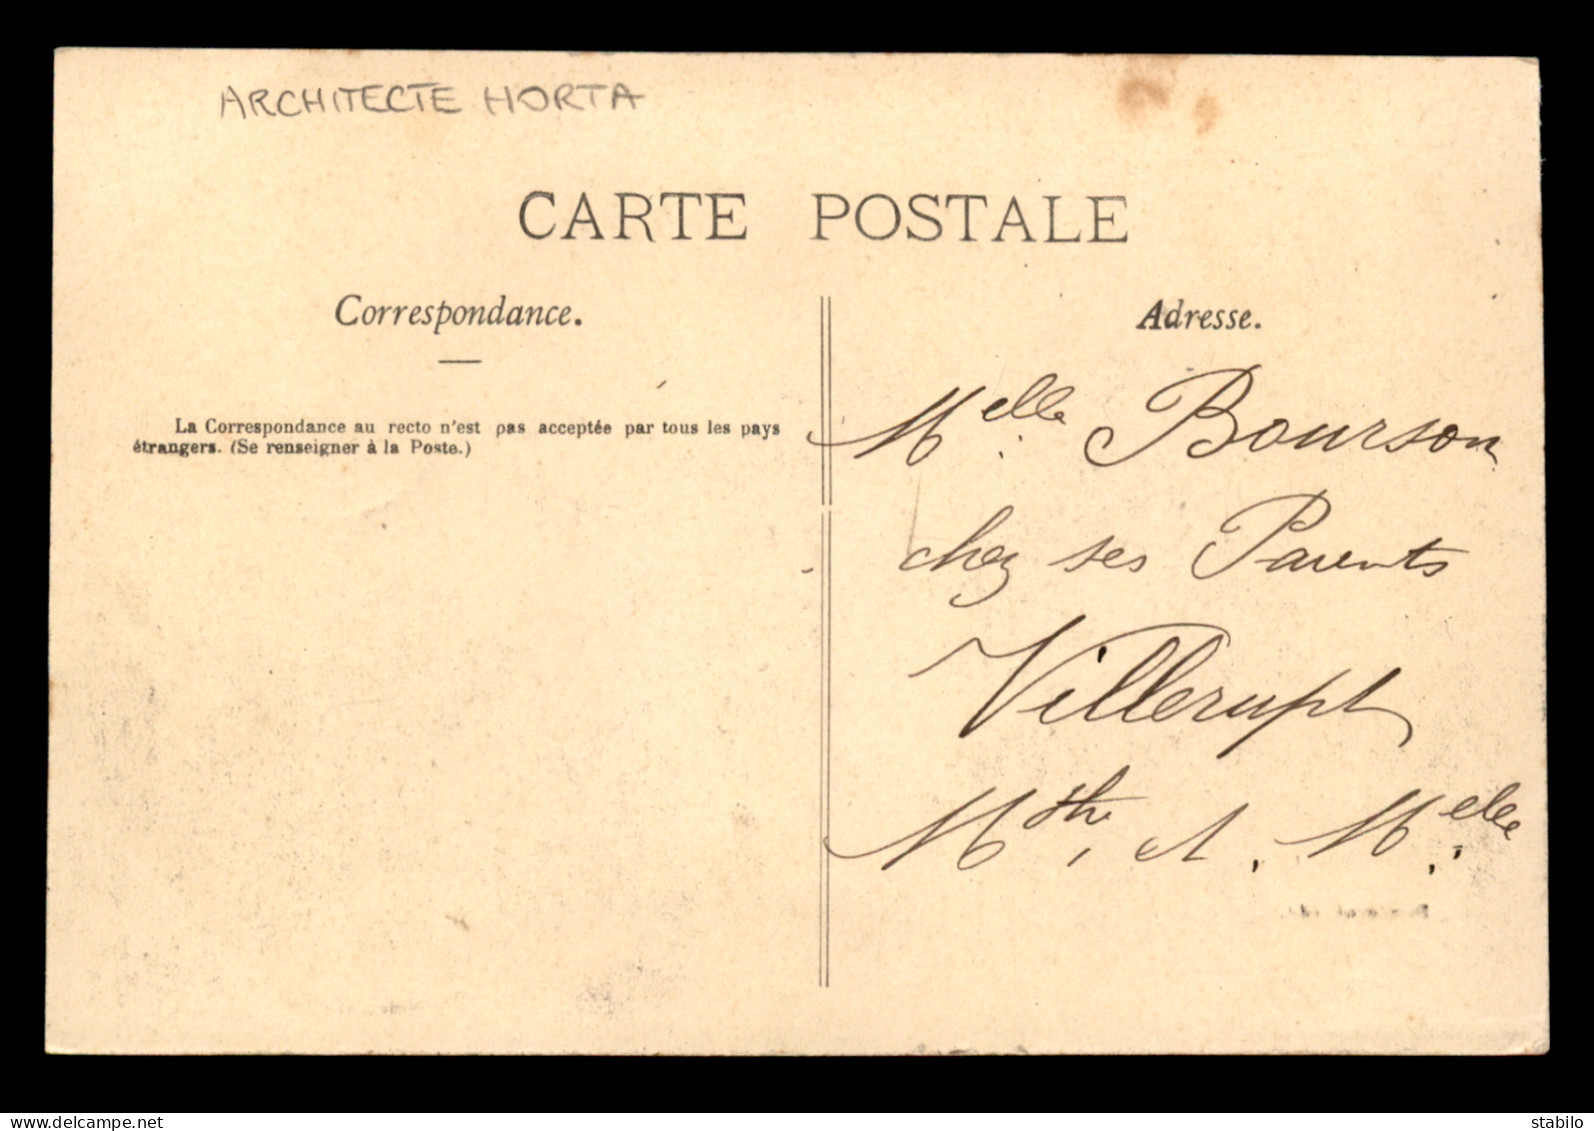 ARCHITECTE HORTA
CARTE POSTALE
Correspondance.
La Correspondance au recto n'est pas acceptée par tous les pays
étrangers. (Se renseigner à la Poste.)
Adresse.
Melle Bourson
chez ses Parents
Villerupt
Mthe et Melle
www.delcampe.net
stabilo